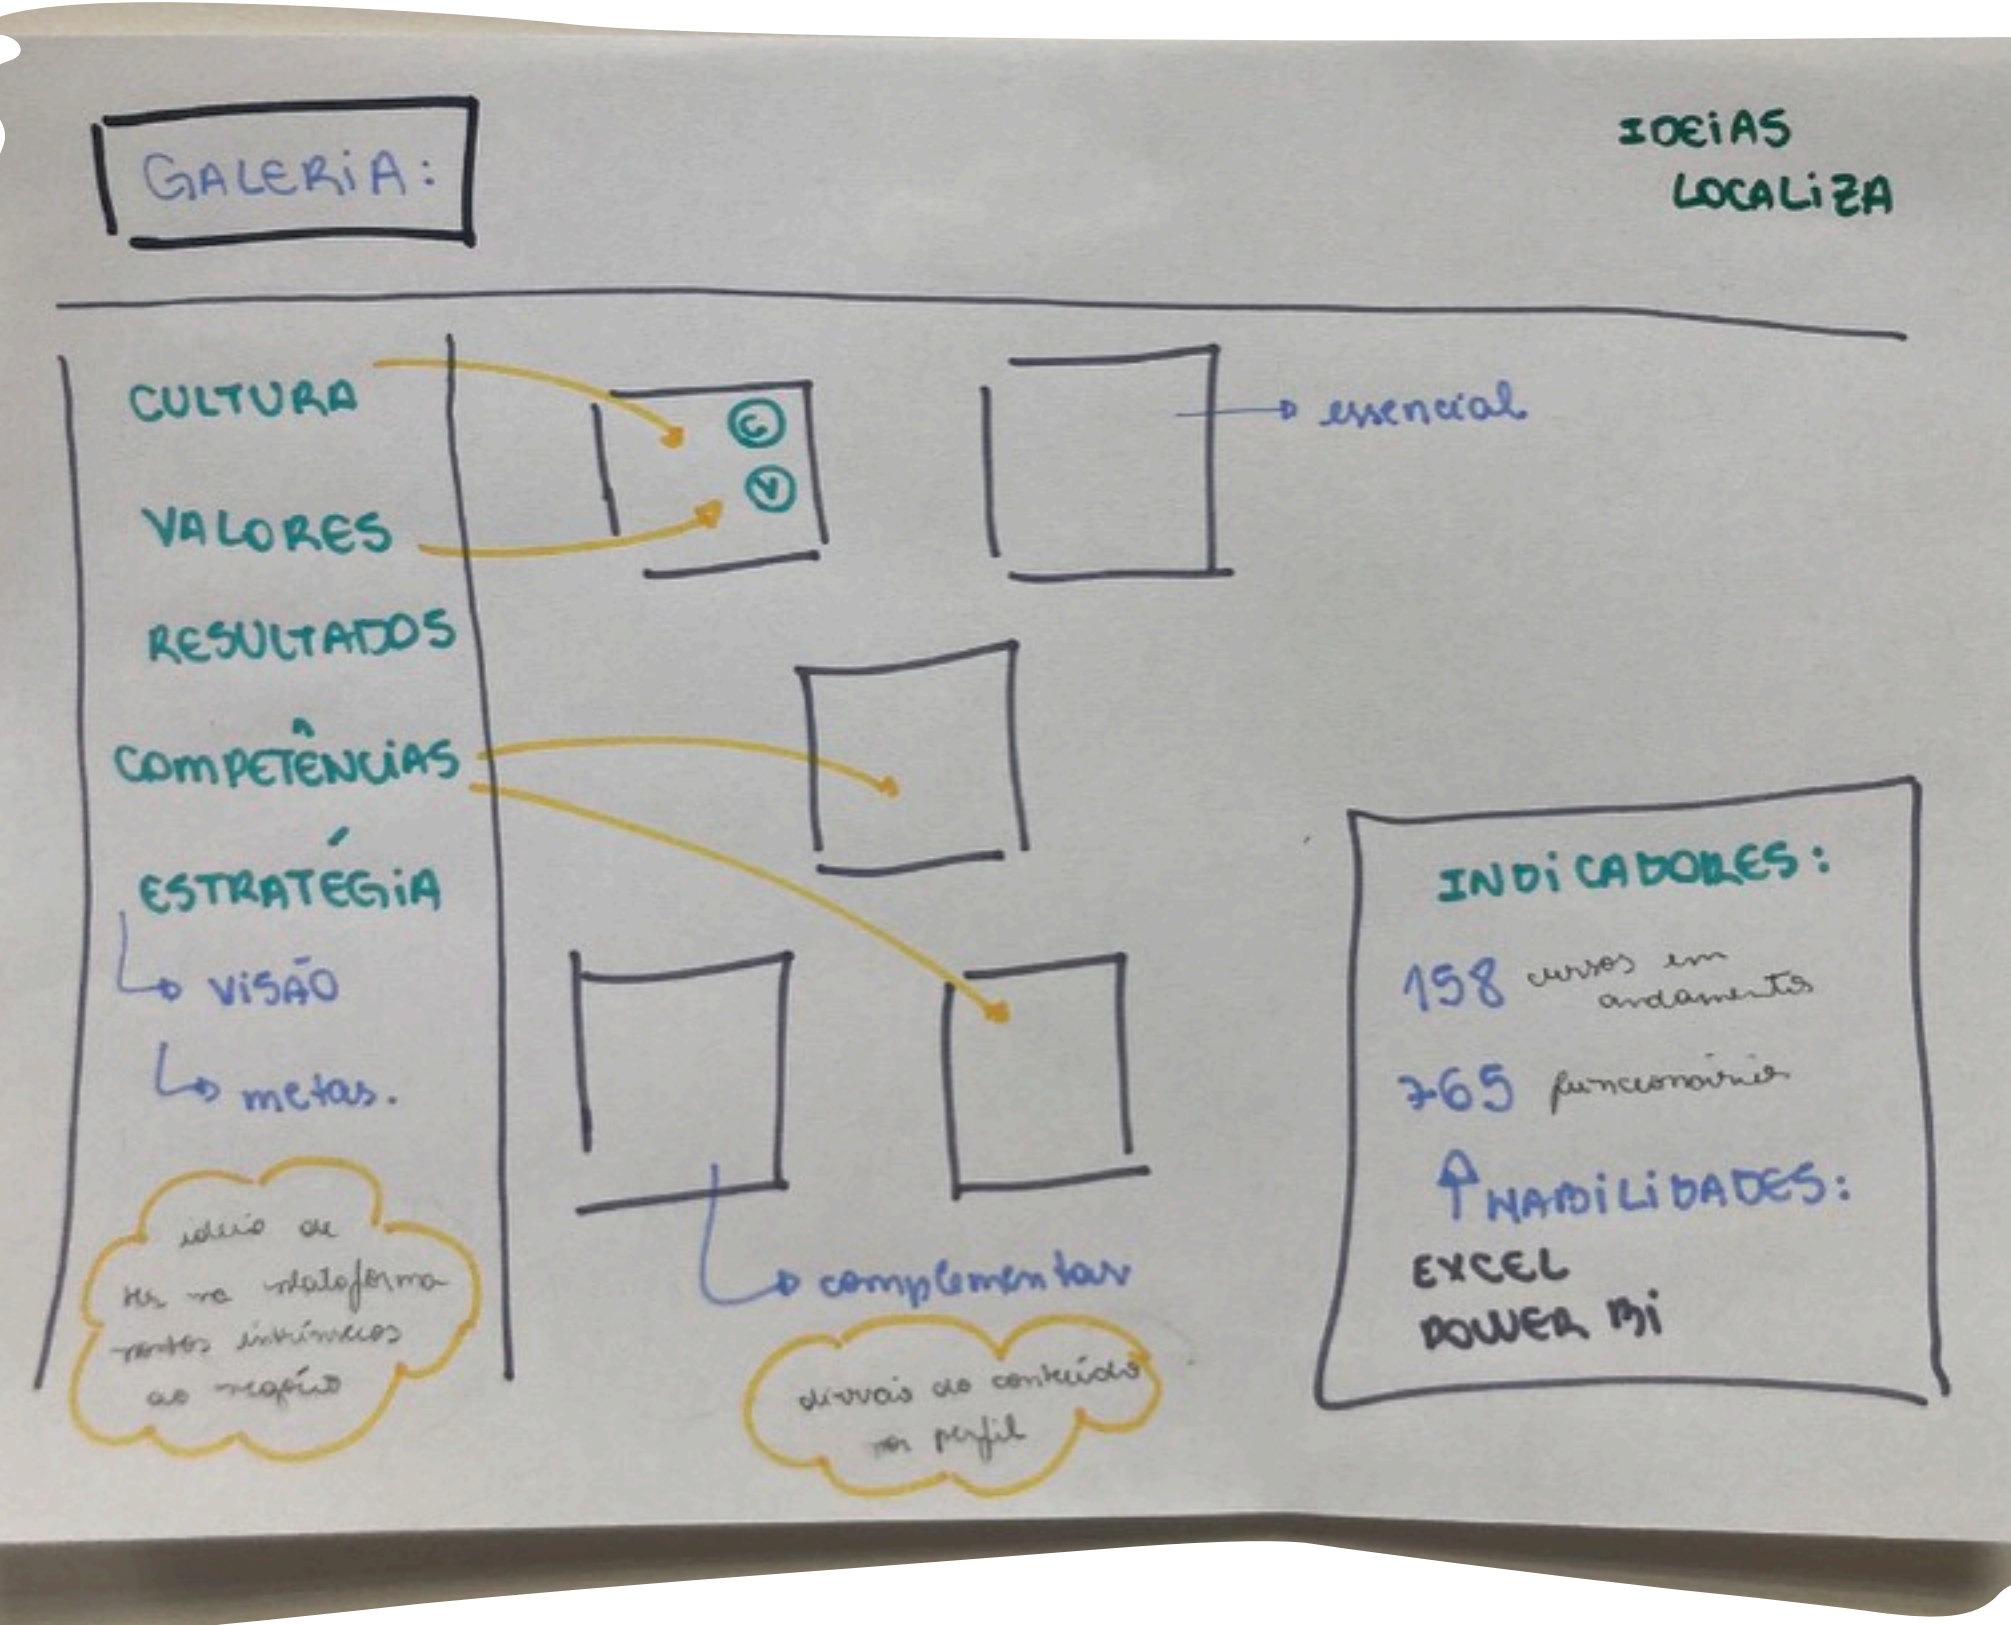 GALERIA:
IDEIAS
LOCALIZA
CULTURA
VALORES
RESULTADOS
COMPETÊNCIAS
ESTRATÉGIA
VISÃO
metas.
ideia de
ter na plataforma
pontos intrínsecos
ao negócio
C
V
essencial
complementar
divisão do conteúdo
por perfil
INDICADORES:
158 cursos em
andamento
765 funcionários
HABILIDADES:
EXCEL
POWER Bi